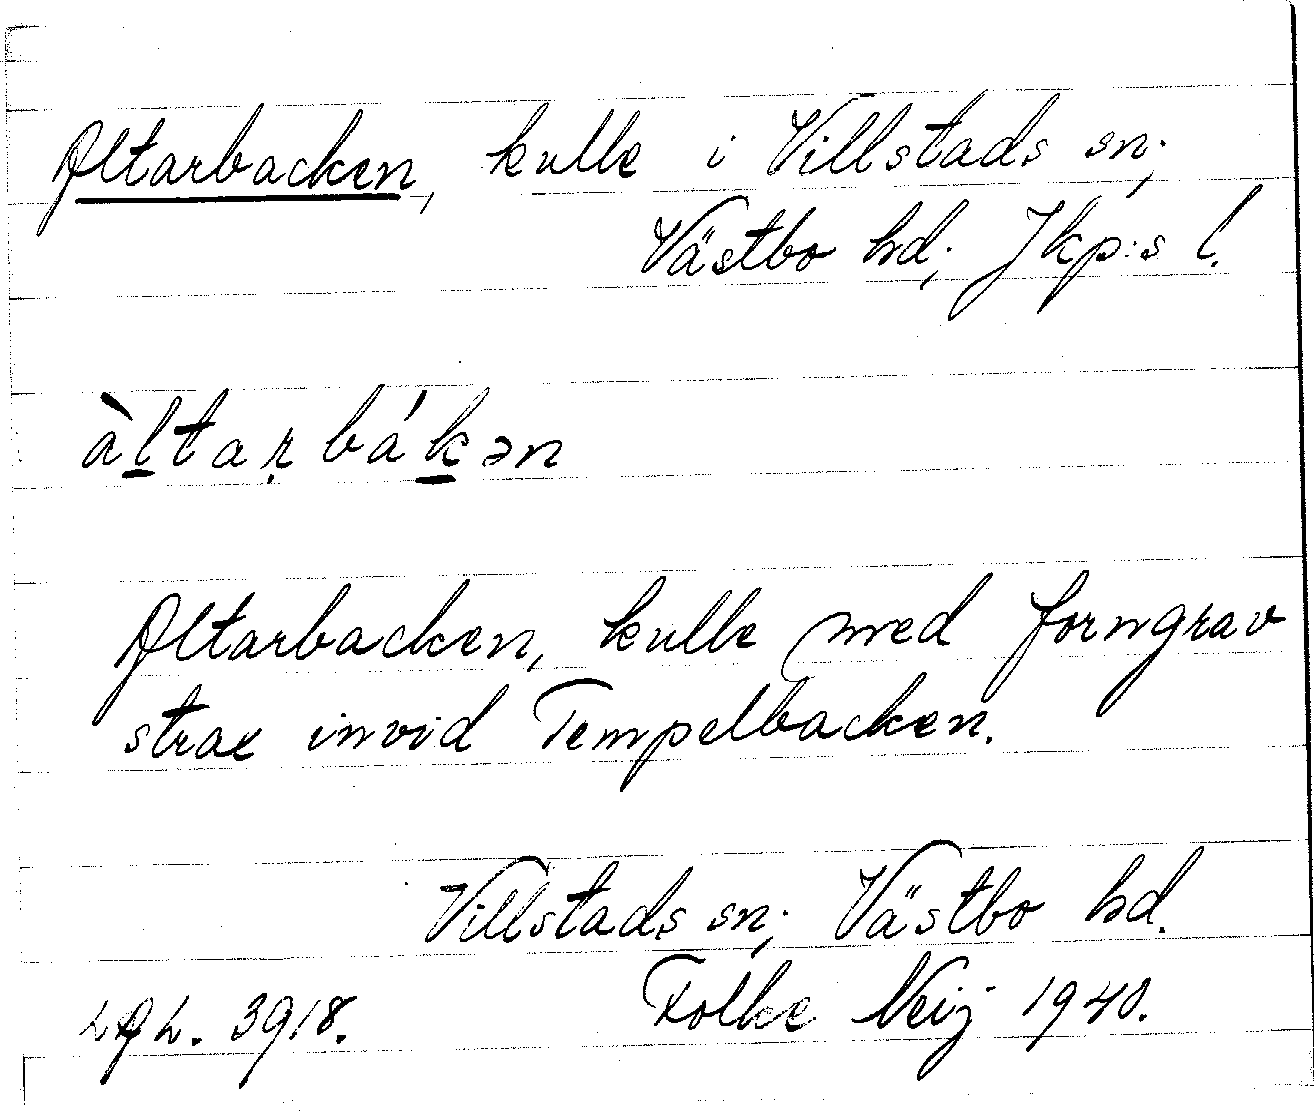 Altarbacken, kulle i Villstads sn;
Västbo hd; Jkp:s l.
àl̠taṛbák̠ən
Altarbacken, kulle med forngrav
strax invid Tempelbacken.
Villstads sn; Västbo hd.
Folke Neij 1940.
LAL. 3918.